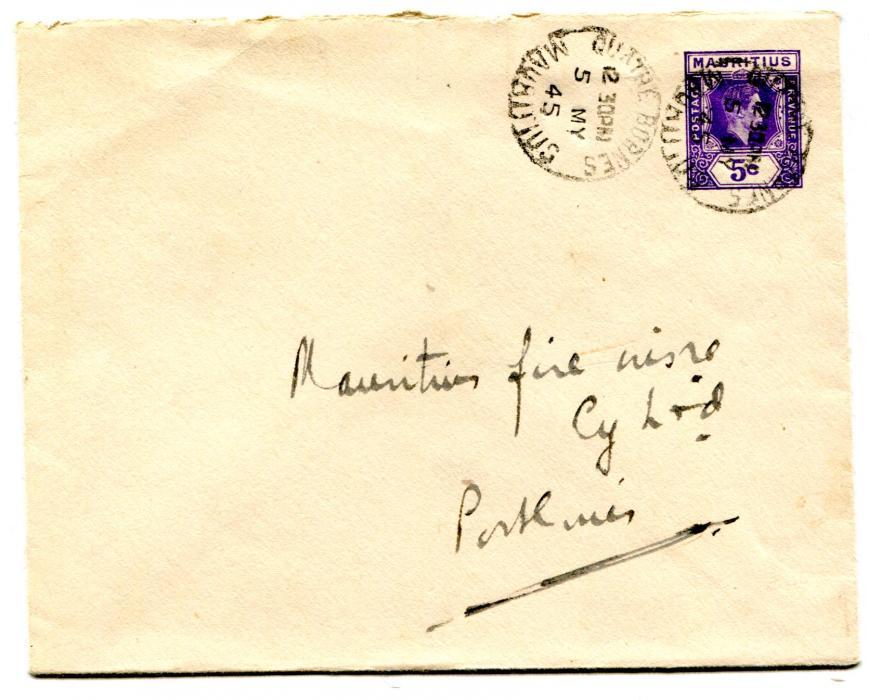 QUATRE BORNES
12 30PM
5 MY
45
MAURITIUS
MAURITIUS
POSTAGE
REVENUE
5c
Mauritius fire insre
Cy Ltd
Port Louis